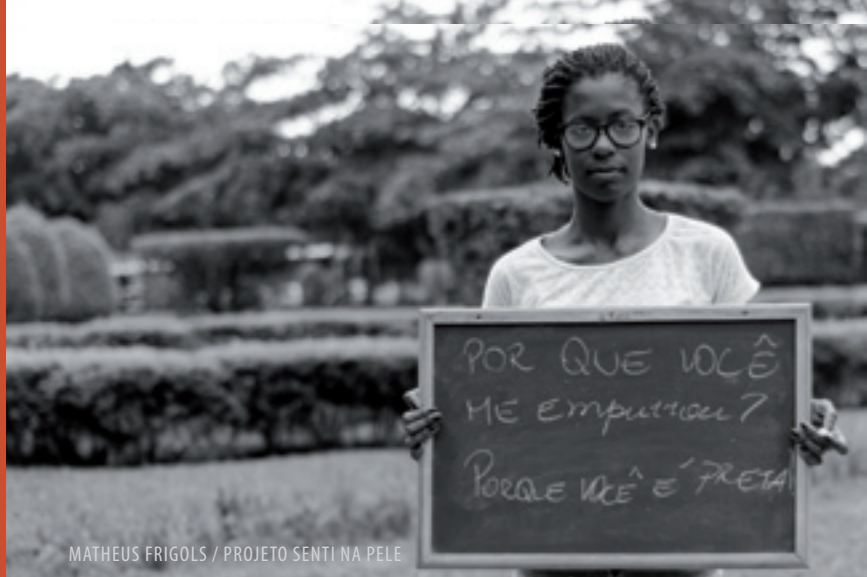 POR QUE VOCÊ
ME empurrou?
PORQUE VOCÊ É PRETA!
MATHEUS FRIGOLS / PROJETO SENTI NA PELE